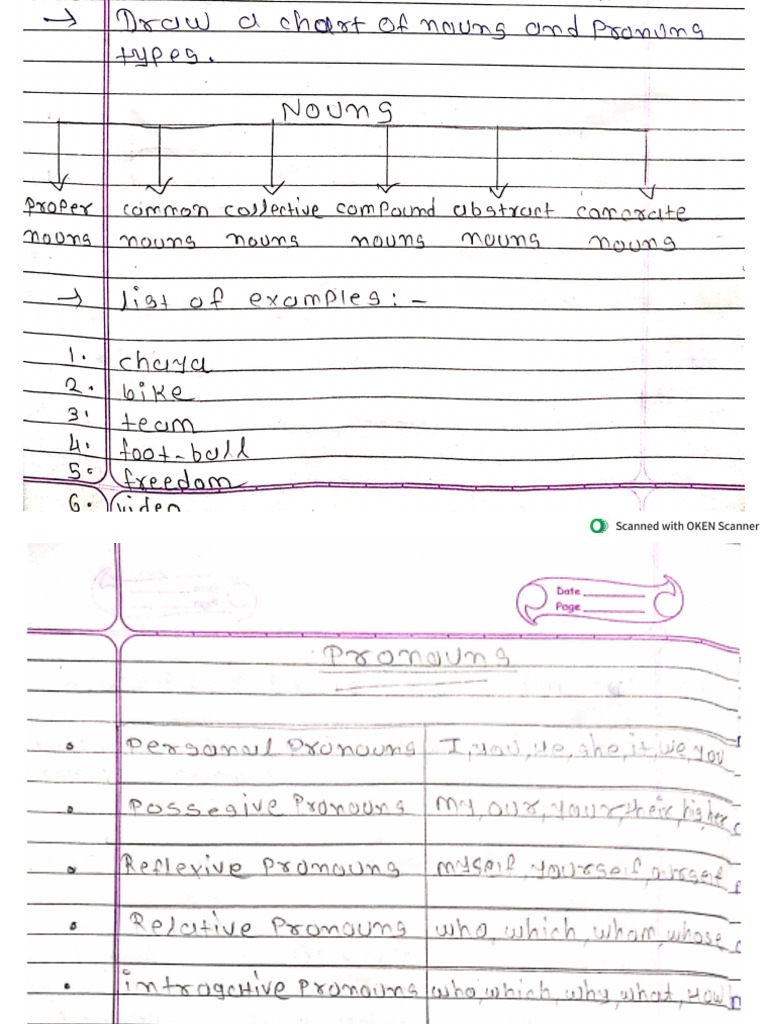 → Draw a chart of nouns and Pronuns
types.
Nouns
Proper common collective compound abstract concrate
nouns nouns nouns nouns nouns nouns
→ list of examples: -
1. chaya
2. bike
3. team
4. foot-ball
5. freedom
6. video
Scanned with OKEN Scanner
Date
Page
Pronouns
• Personal Pronouns I, you, he, she, it, we, you
• Possesive Pronouns my, our, your, their, his, her
• Reflexive Pronouns myself, yourself, ourself
• Relative Pronouns who, which, whom, whose
• introgative Pronouns who, which, why, what, How